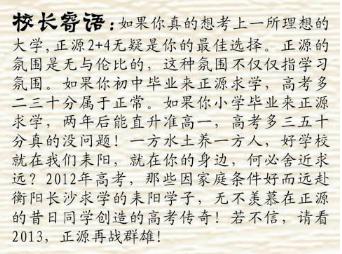 校长寄语：如果你真的想考上一所理想的
大学，正源2+4无疑是你的最佳选择。正源的
氛围是无与伦比的，这种氛围不仅仅指学习
氛围。如果你初中毕业来正源求学，高考多
二三十分属于正常。如果你小学毕业来正源
求学，两年后能直升准高一，高考多三五十
分真的没问题！一方水土养一方人，好学校
就在我们耒阳，就在你的身边，何必舍近求
远？2012年高考，那些因家庭条件好而远赴
衡阳长沙求学的耒阳学子，无不羡慕在正源
的昔日同学创造的高考传奇！若不信，请看
2013，正源再战群雄！